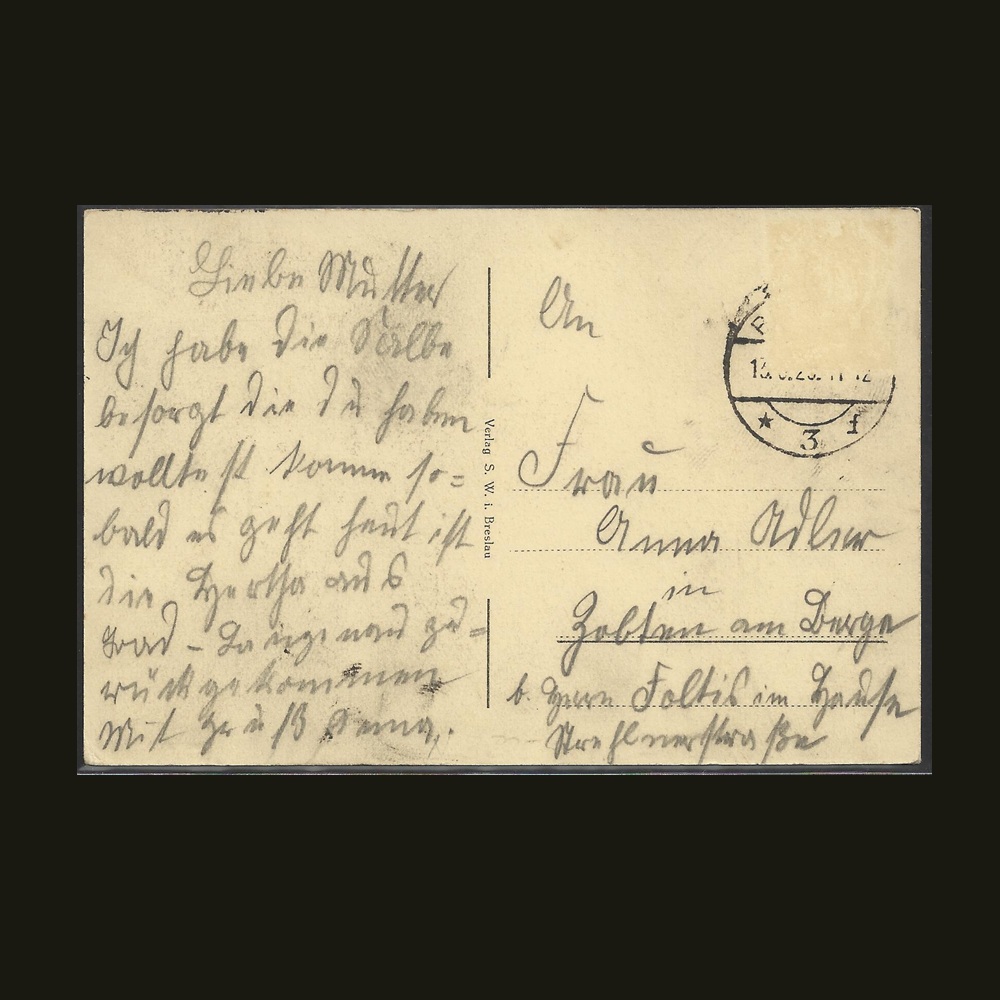 Liebe Mutter
Ich habe die Salbe
besorgt die du haben
wolltest komme so=
bald es geht heut ist
die Hertha aus
Bad - Langenau zu=
rückgekommen
Mit Gruß
Verlag S. W. i. Breslau
An
Frau
Anna Adler
in
Zobten am Berge
b. Herrn Foltis im Hause
Strehlnerstraße
* 3 f